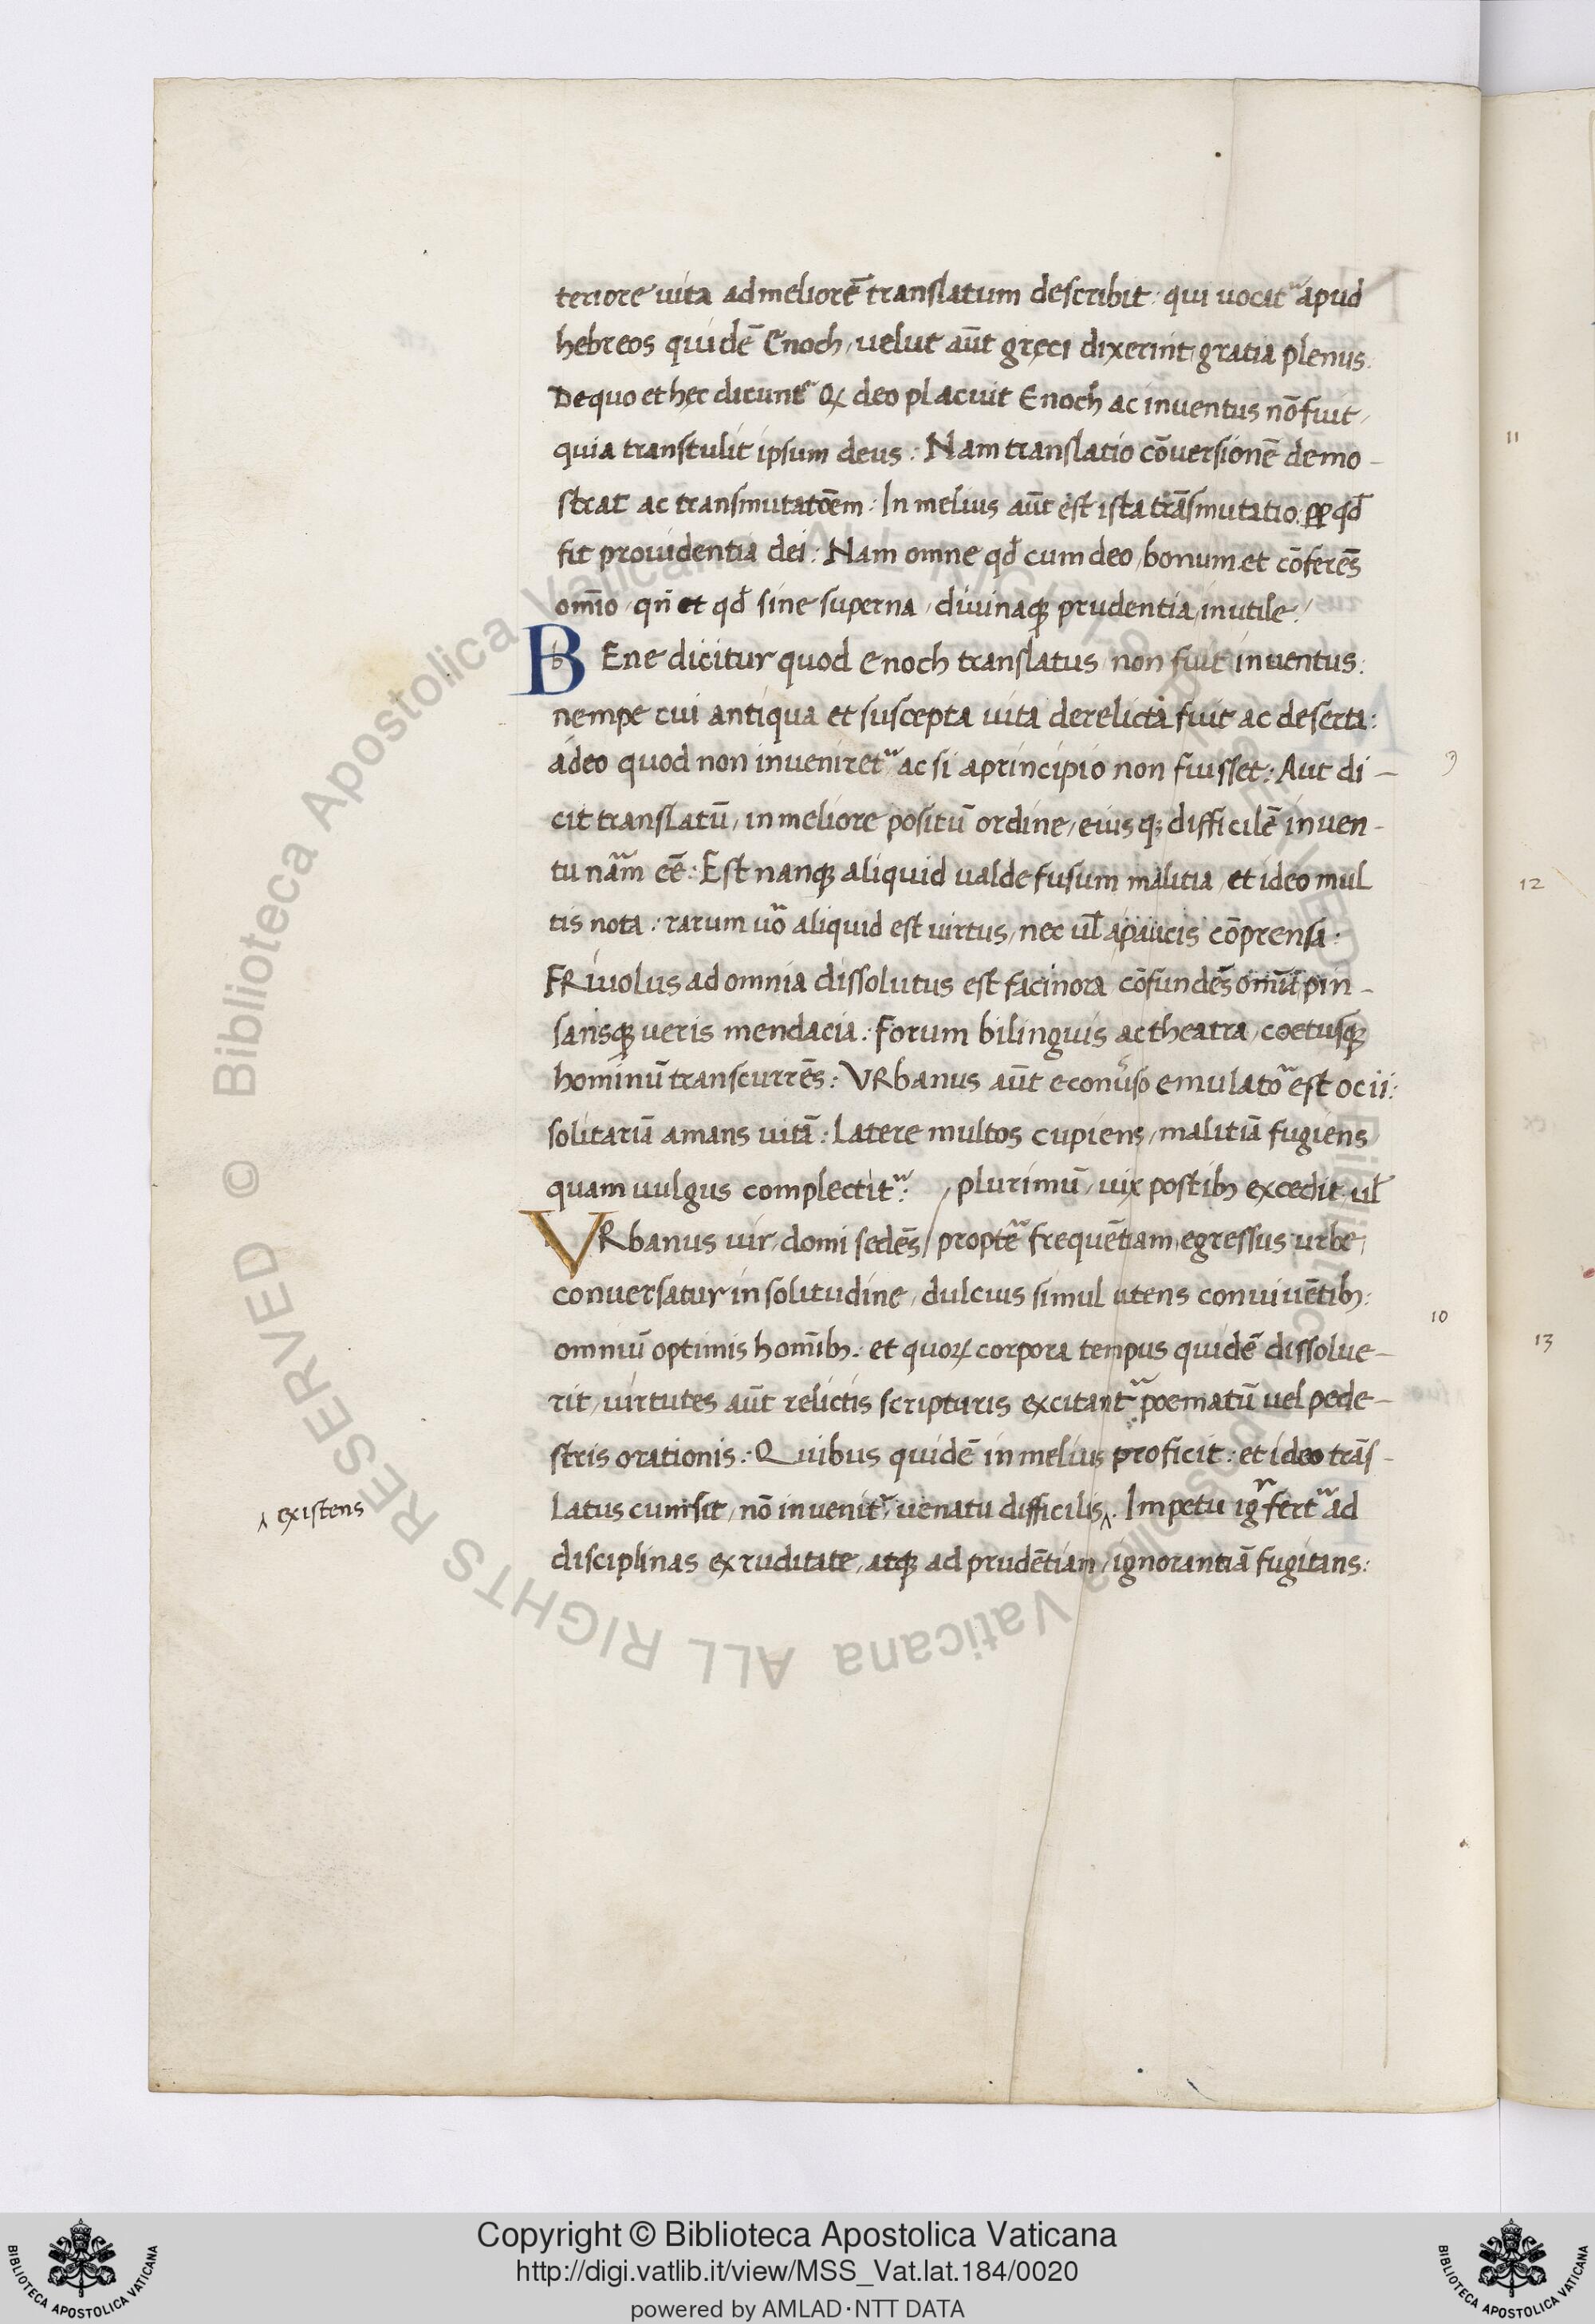 teriore uita ad meliorē translatum describit: qui uocat᷑ apud
hebreos quidē Enoch, uelut aūt gręci dixerint gratia plenus.
De quo et hęc dicunt᷑ Qꝫ deo placuit Enoch ac inuentus nō fuit,
quia transtulit ipsum deus: Nam translatio cōuersionē demo-
strat ac transmutatōem: In melius aūt est ista trāsmutatio: ꝓp qđ
fit prouidentia dei: Nam omne qđ cum deo, bonum et cōferēs
om̄io, qn̄ et qđ sine superna, diuinaqꝫ prudentia, inutile:
BEne dicitur quod enoch translatus non fuit inuentus:
nempe cui antiqua et suscepta uita derelicta fuit ac deserta:
adeo quod non inueniret᷑ ac si a principio non fuisset: Aut di-
cit translatū, in meliore positū ordine, eius qꝫ difficilē inuen-
tu nãm eē: Est nanqꝫ aliquid ualde fusum malitia, et ideo mul
tis nota: rarum uo᷑ aliquid est uirtus, nec ul̄ a paucis cōprensa:
FRiuolus ad omnia dissolutus est facinora cōfundēs omīa pin-
sansqꝫ ueris mendacia: Forum bilinguis ac theatra, coetusqꝫ
hominū transcurrēs: VRbanus aūt econũso emulato᷑ est ocii:
solitariā amans uitā: Latere multos cupiens, malitiā fugiens
quam uulgus complectit᷑: , plurimū, uix postibꝫ excedit ul̄
VRbanus uir, domi sedēs, propte᷑ frequētiam egressus urbe,
conuersatur in solitudine, dulcius simul utens conuiuētibꝫ:
omniū optimis homībꝫ: et quoꝝ corpora tempus quidē dissolue-
rit, uirtutes aūt relictis scripturis excitant᷑ poematū uel pede-
stris orationis: Quibus quidē in melius proficit: et ideo trās-
latus cum sit, nō inuenit᷑, uenatu difficilis‸. Impetu ig᷑ fert᷑ ad
‸ existens
disciplinas ex ruditate, atqꝫ ad prudētiam, ignorantiā fugitans:
9
10
11
12
13
Biblioteca Apostolica Vaticana ALL RIGHTS RESERVED ©
Copyright © Biblioteca Apostolica Vaticana
http://digi.vatlib.it/view/MSS_Vat.lat.184/0020
powered by AMLAD·NTT DATA
BIBLIOTECA APOSTOLICA VATICANA
BIBLIOTECA APOSTOLICA VATICANA